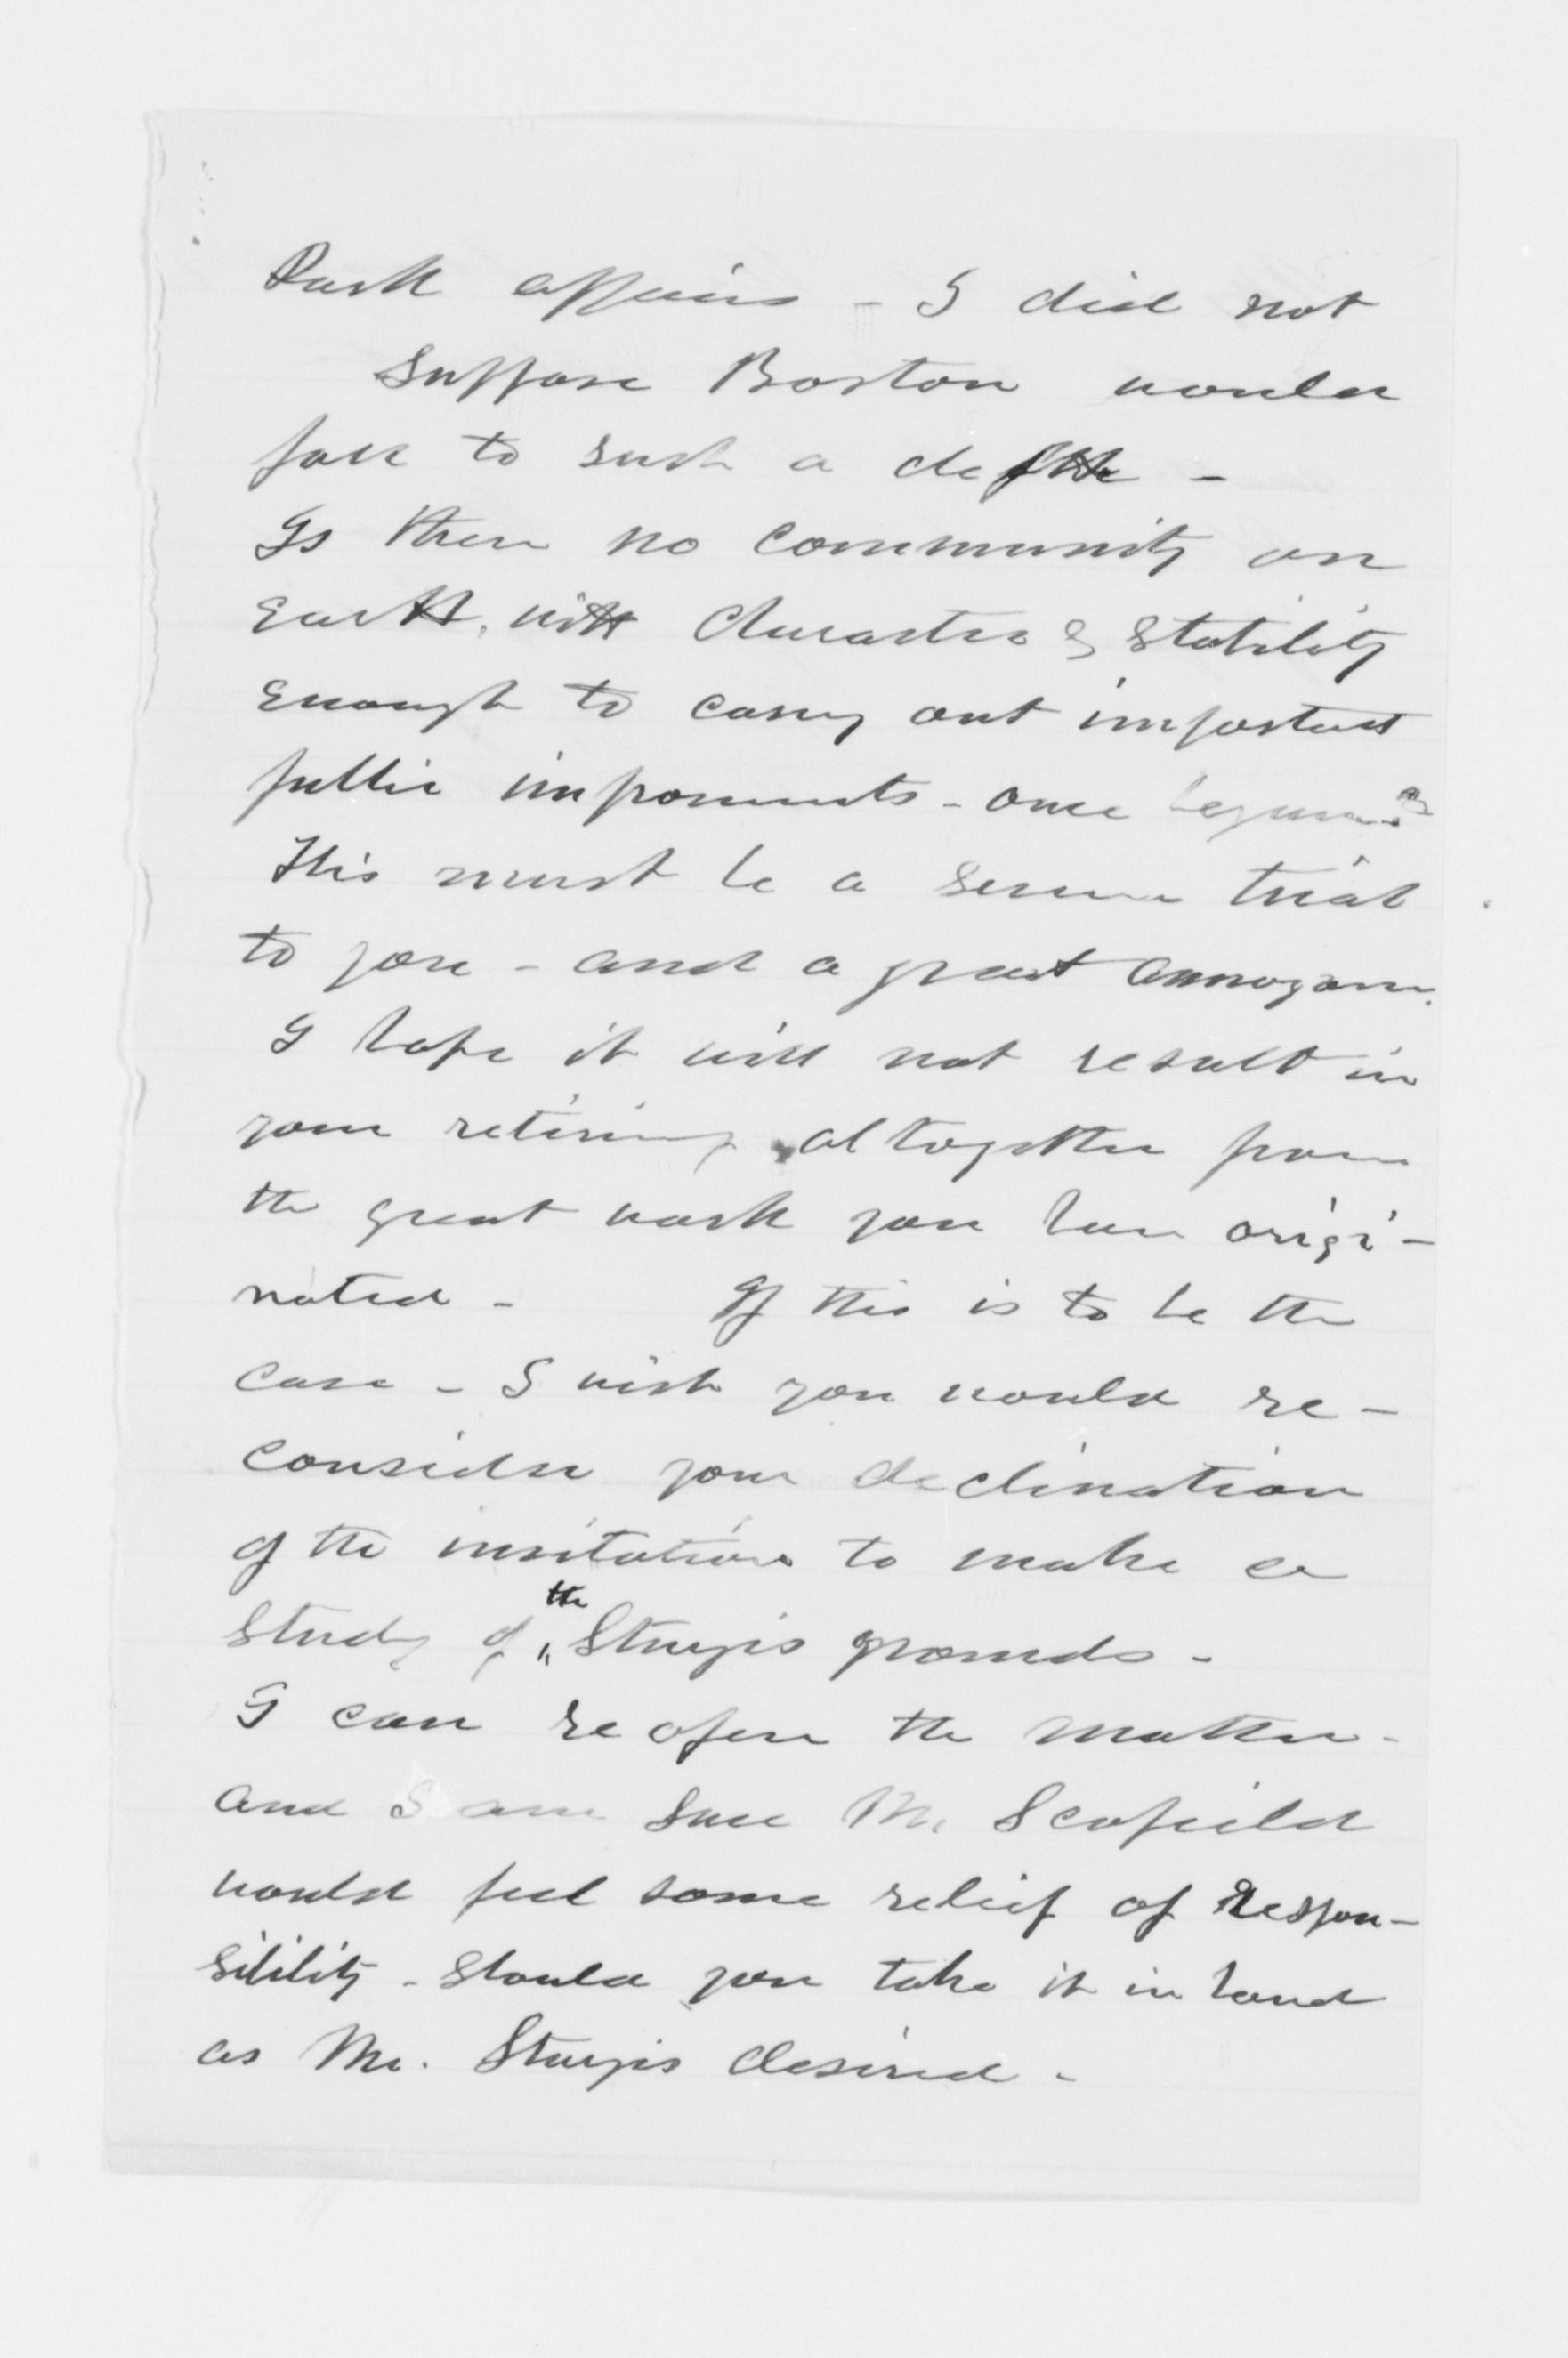 Park affairs - I did not
suppose Boston would
fall to such a depth -
Is there no community on
Earth, with Character & stability
enough to carry out important
public improvements - once begun?
This must be a severe trial
to you - and a great annoyance.
I hope it will not result in
your retiring altogether from
the great work you have origi-
nated - If this is to be the
case - I wish you would re-
consider your declination
of the invitation to make a
study of the Sturgis grounds -
I can reopen the matter -
and I am sure Mr. Scofield
would feel some relief of respon-
sibility - should you take it in hand
as Mr. Sturgis desired -